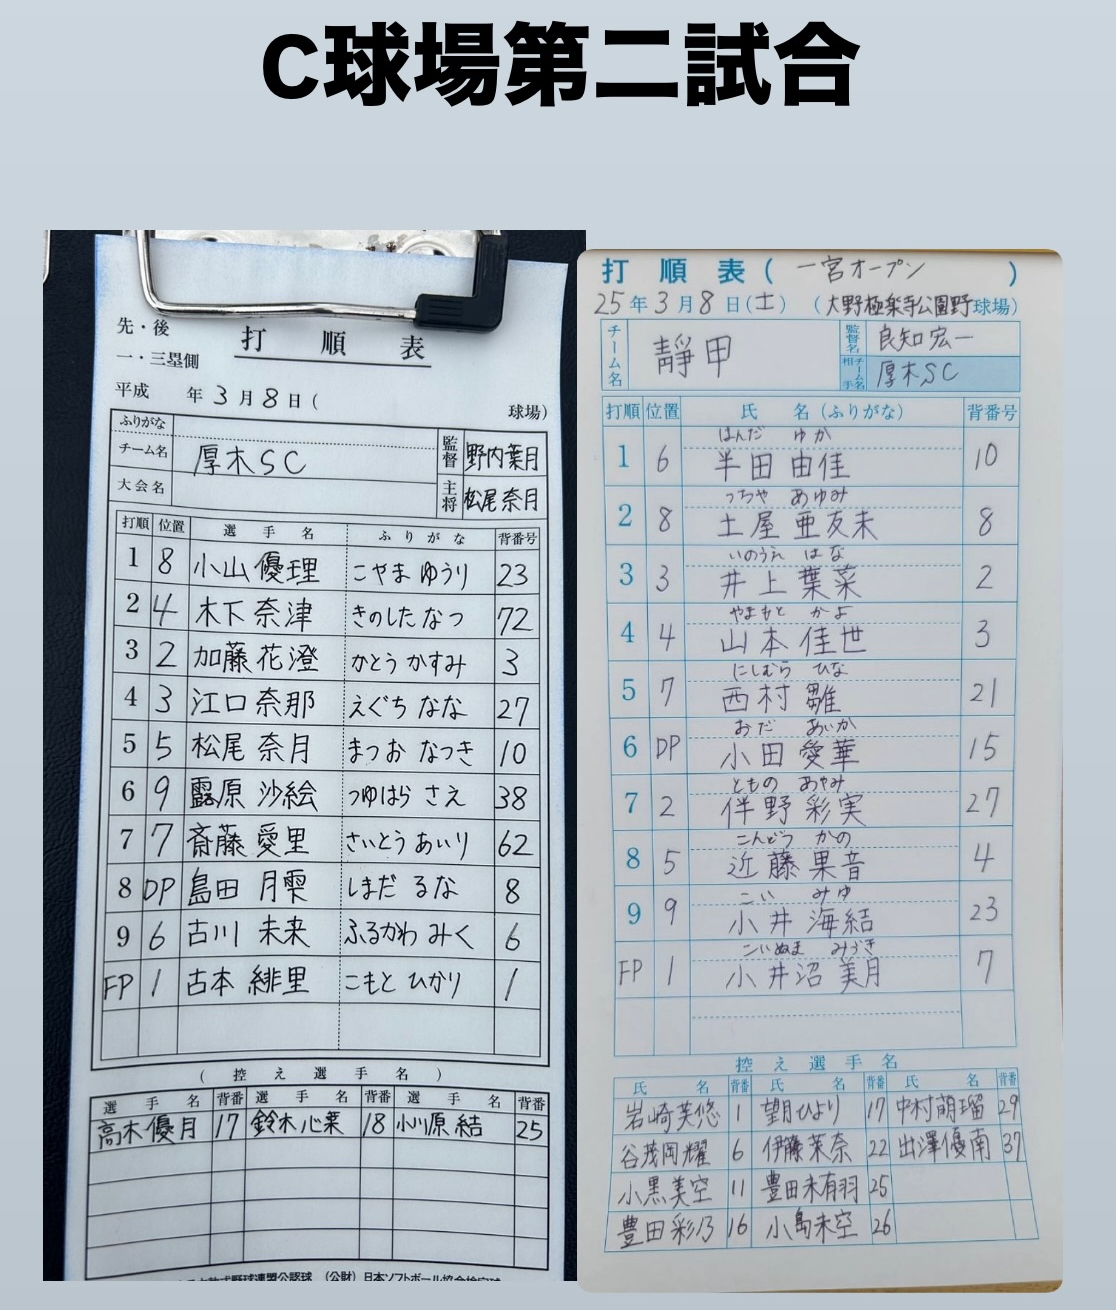 C球場第二試合
先・後
打順表
一・三塁側
平成 年 3月8日( 球場)
ふりがな
チーム名 厚木SC 監督 野内葉月
大会名 主将 松尾奈月
打順 位置 選手名 ふりがな 背番号
1 8 小山優理 こやま ゆうり 23
2 4 木下奈津 きのした なつ 72
3 2 加藤花澄 かとう かすみ 3
4 3 江口奈那 えぐち なな 27
5 5 松尾 奈月 まつお なつき 10
6 9 露原 沙絵 つゆはら さえ 38
7 7 斎藤 愛里 さいとう あいり 62
8 DP 島田 月雫 しまだ るな 8
9 6 古川 未来 ふるかわ みく 6
FP 1 古本 緋里 こもと ひかり 1
(控え選手名)
選手名 背番 選手名 背番 選手名 背番
高木優月 17 鈴木心菜 18 小川原結 25
(公財)日本ソフトボール協会検定球
打順表(一宮オープン)
25年3月8日(土)(大野極楽寺公園野球場)
チーム名 靜甲 監督名 良知宏一
相手チーム名 厚木SC
打順 位置 氏名(ふりがな) 背番号
はんだ ゆか
1 6 半田由佳 10
つちや あゆみ
2 8 土屋亜友未 8
いのうえ はな
3 3 井上葉菜 2
やまもと かよ
4 4 山本佳世 3
にしむら ひな
5 7 西村雛 21
おだ あいか
6 DP 小田愛華 15
ともの あやみ
7 2 伴野彩実 27
こんどう かの
8 5 近藤果音 4
こい みゆ
9 9 小井海結 23
こいぬま みづき
FP 1 小井沼美月 7
控え選手名
氏名 背番 氏名 背番 氏名 背番
岩崎芙悠 1 望月ひより 17 中村萌瑠 29
谷茂岡耀 6 伊藤茉奈 22 出澤優南 37
小黒美空 11 豊田未有羽 25
豊田彩乃 16 小島未空 26